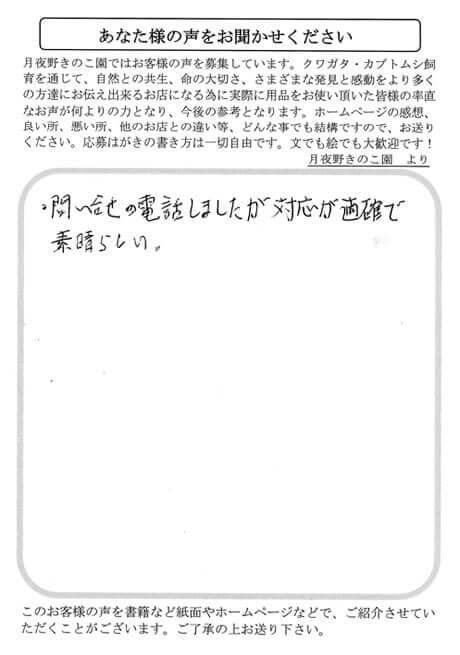 あなた様の声をお聞かせください
月夜野きのこ園ではお客様の声を募集しています。クワガタ・カブトムシ飼
育を通じて、自然との共生、命の大切さ、さまざまな発見と感動をより多く
の方達にお伝え出来るお店になる為に実際に用品をお使い頂いた皆様の率直
なお声が何よりの力となり、今後の参考となります。ホームページの感想、
良い所、悪い所、他のお店との違い等、どんな事でも結構ですので、お送り
ください。応募はがきの書き方は一切自由です。文でも絵でも大歓迎です！
月夜野きのこ園　より
・問い合せの電話しましたが対応が適確で
素晴らしい。
このお客様の声を書籍など紙面やホームページなどで、ご紹介させてい
ただくことがございます。ご了承の上お送り下さい。